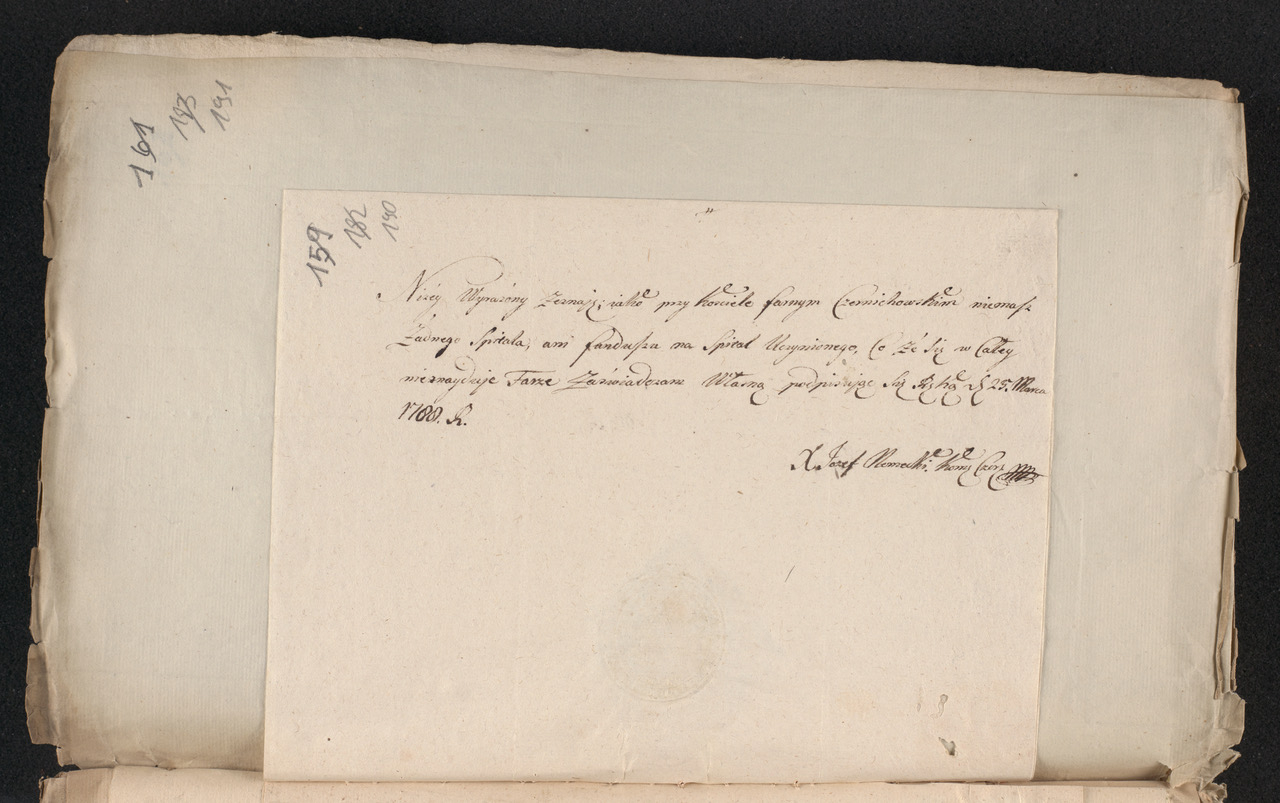 161
193
191
159
182
190
Niżéy Wyrażóny Zeznaję; iako przy kościele farnym Czernichowskim niemasz
Żadnego Szpitala, ani fanduszu na Szpital Uczynionego, Co Że się w Całey
nieznayduje Farze Zaświadczam Własną podpisując się Ręką d 25. Marca
1788. R.
X Jozef Kom Czer
8